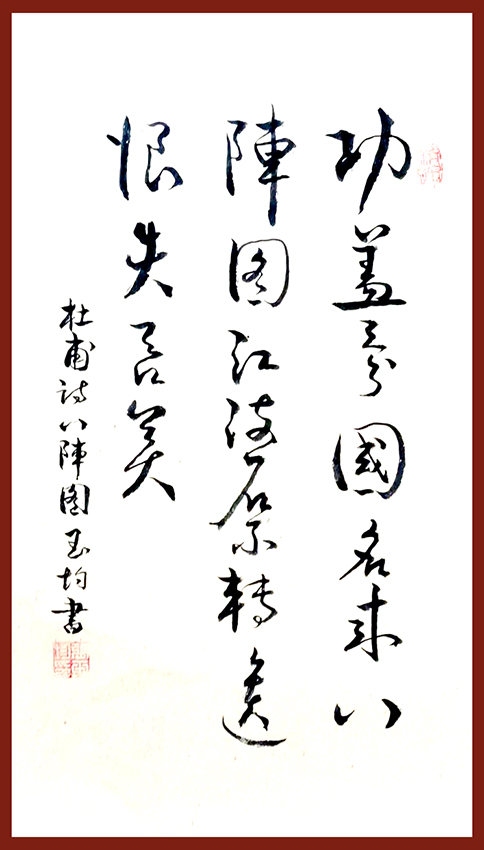 功盖三分國名成八
陣图江流石不轉遺
恨失吞吴
杜甫诗八陣图玉均書